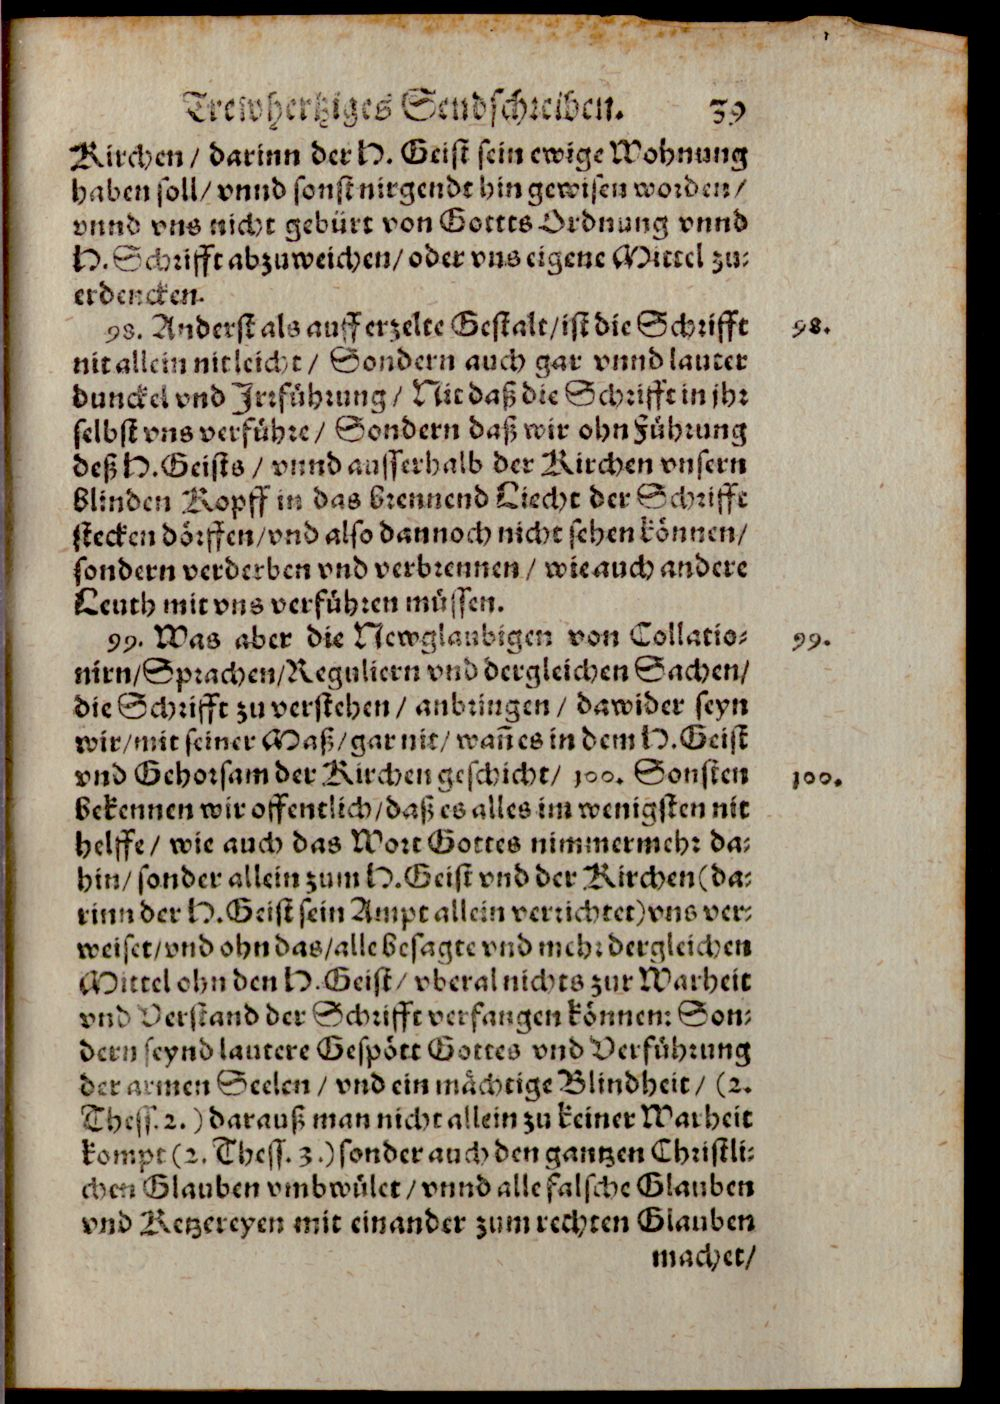 Trewhertziges Sendschreiben. 39
Kirchen / darinn der H. Geist sein ewige Wohnung
haben soll / vnnd sonst nirgendt hin gewisen worden /
vnnd vns nicht gebürt von Gottts Ordnung vnnd
H. Schrifft abzuweichen / oder vns eigene Mittel zu-
erdencken.
98. Anderst als auff erzelte Gestalt / ist die Schrifft 98.
nit allein nit leicht / Sondern auch gar vnnd lauter
dunckel vnd Irrführung / Nit daß die Schrifft in jhr
selbst vns verführe / Sondern daß wir ohn Führung
deß H. Geists / vnnd ausserhalb der Kirchen vnsern
blinden Kopff in das brennend Liecht der Schrifft
stecken dörffen / vnd also dannoch nicht sehen können /
sondern verderben vnd verbrennen / wie auch andere
Leuth mit vns verführen müssen.
99. Was aber die Newglaubigen von Collatio- 99.
nirn / Sprachen / Reguliern vnd dergleichen Sachen /
die Schrifft zu verstehen / anbringen / dawider seyn
wir / mit seiner Maß / gar nit / wañ es in dem H. Geist
vnd Gehorsam der Kirchen geschicht / 100. Sonsten 100.
bekennen wir offentlich / daß es alles im wenigsten nit
helffe / wie auch das Wort Gottes nimmermehr da-
hin / sonder allein zum H. Geist vnd der Kirchen (da-
rinn der H. Geist sein Ampt allein verrichtet) vns ver-
weiset / vnd ohn das / alle besagte vnd mehr dergleichen
Mittel ohn den H. Geist / vberal nichts zur Warheit
vnd Verstand der Schrifft verfangen können: Son-
dern seynd lautere Gespött Gottes vnd Verführung
der armen Seelen / vnd ein mächtige Blindheit / (2.
Thess. 2.) darauß man nicht allein zu keiner Warheit
kompt (2. Thess. 3.) sonder auch den gantzen Christli-
chen Glauben vmbwület / vnnd alle falsche Glauben
vnd Ketzereyen mit einander zum rechten Glauben
machet /